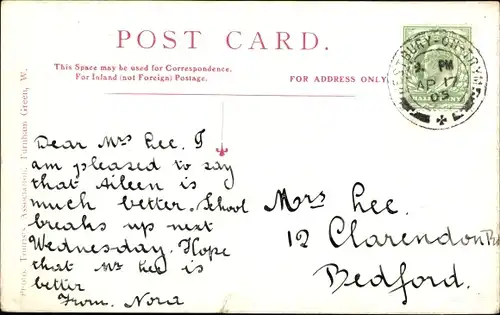 POST CARD.
This Space may be used for Correspondence.
For Inland (not Foreign) Postage.
FOR ADDRESS ONLY
WESTBURY-ON-TRYM
PM
AP 17
05
Photo. Tourists Association, Turnham Green, W.
Dear Mrs Lee. I
am pleased to say
that Aileen is
much better. School
breaks up next
Wednesday. Hope
that Mr Lee is
better
From. Nora
Mrs Lee.
12 Clarendon Rd
Bedford.